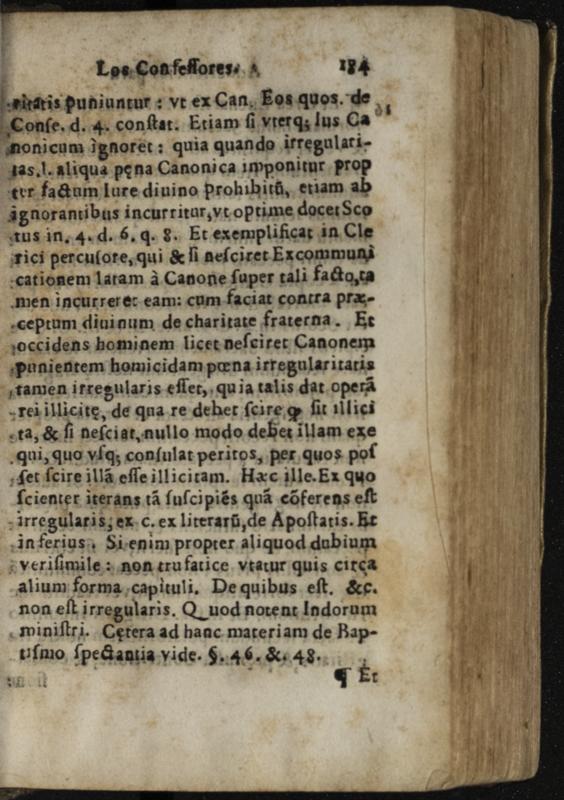 Los Confessores. 184
ritatis puniuntur : vt ex Can. Eos quos. de
Conse. d. 4. constat. Etiam si vterq; Ius Ca
nonicum ignoret : quia quando irregulari-
tas.l. aliqua pęna Canonica imponitur prop
ter factum Iure diuino prohibitũ, etiam ab
ignorantibus incurritur, vt optime docet Sco
tus in. 4. d. 6. q. 8. Et exemplificat in Cle
rici percusore, qui & si nesciret Excommuni
cationem latam à Canone super tali facto, ta
men incurreret eam: cum faciat contra præ-
ceptum diuinum de charitate fraterna. Et
occidens hominem licet nesciret Canonem
punientem homicidam pœna irregularitatis
tamen irregularis esset, quia talis dat operã
rei illicitę, de qua re debet scire ꝙ sit illici
ta, & si nesciat, nullo modo debet illam exe
qui, quo vsq; consulat peritos, per quos pos
set scire illã esse illicitam. Hæc ille. Ex quo
scienter iterans tã suscipiẽs quã cõferens est
irregularis, ex c. ex literarũ, de Apostatis. Et
inferius. Si enim propter aliquod dubium
verisimile : non tru fatice vtatur quis circa
alium forma capituli. De quibus est. &c.
non est irregularis. Quod notent Indorum
ministri. Cętera ad hanc materiam de Bap-
tismo spectantia vide. §. 46. &. 48.
¶ Et